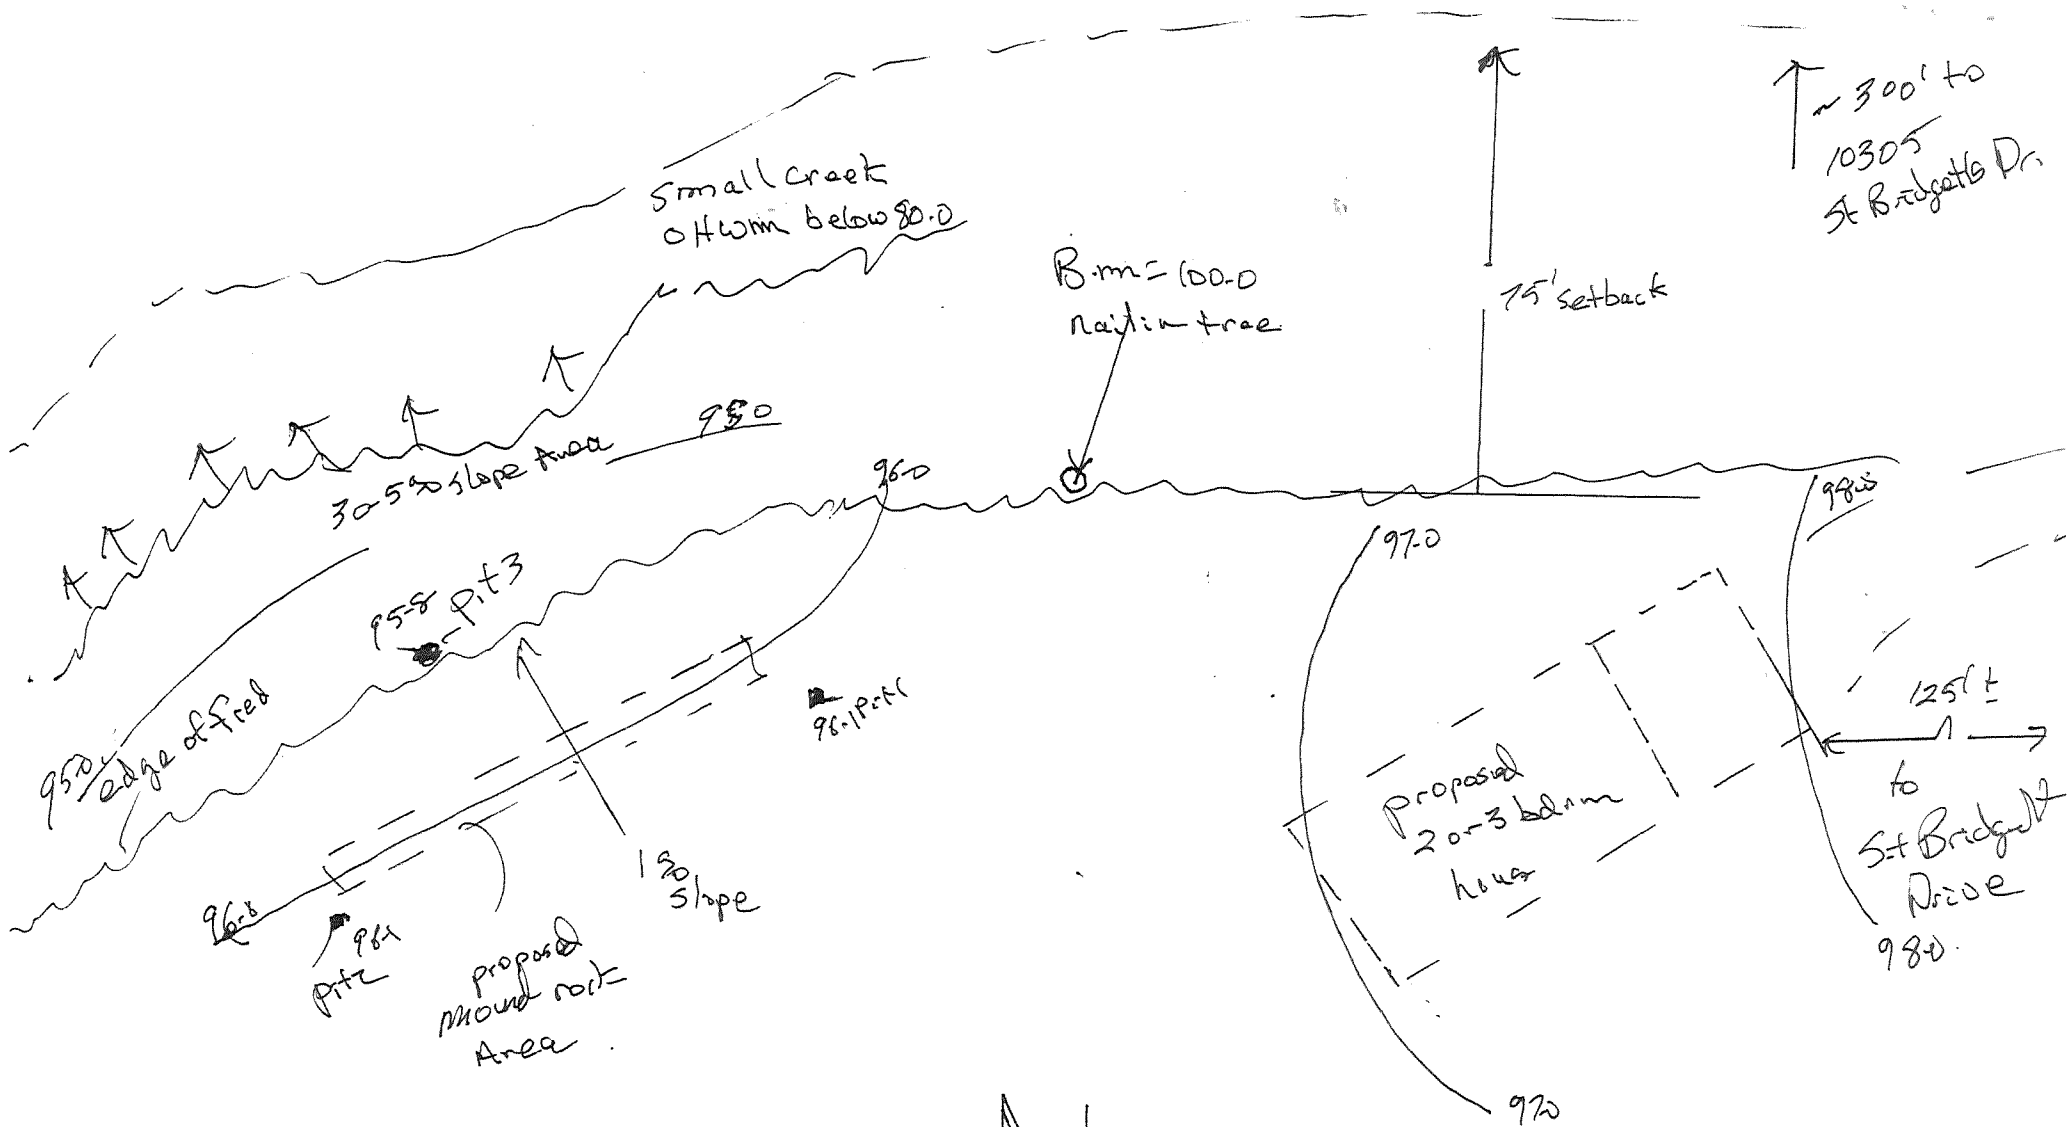 ~ 300' to
10305
St Bridgets Dr.
Small Creek
OHWM below 80.0
B.m = 100.0
nail in tree
75' setback
95.0
30-5% slope Area
96.0
98.0
97.0
95.8
pit 3
95.0
edge of field
96.1 pit 1
125' ±
to
St Bridget
Drive
proposed
2 or 3 bdrm
house
1%
slope
96.0
96.1
pit 2
proposed
mound rock
Area
98.0
97.0